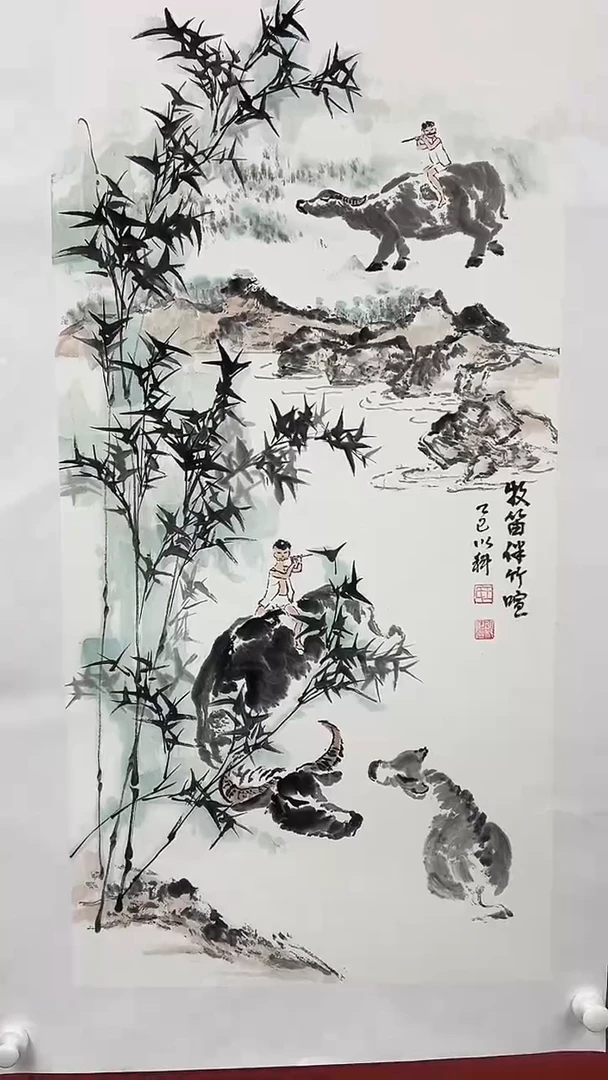 牧笛伴竹喧
乙巳以科